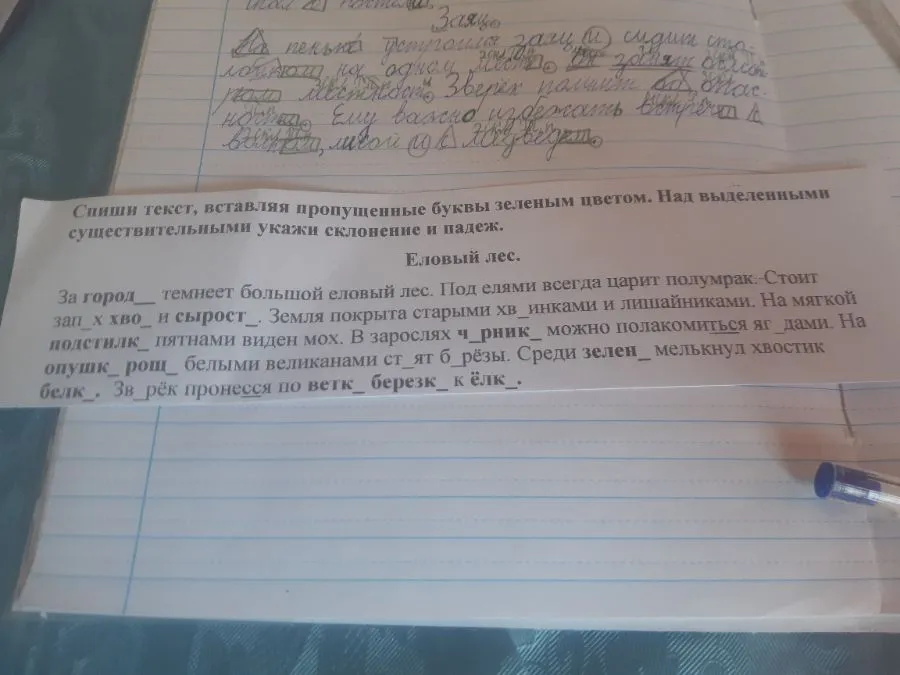 Заяц.
пенька устроился заяц и сидит
на одном месте.
местности. Зверёк помнит
Ему важно избежать встречи
лисой и медведем.
Спиши текст, вставляя пропущенные буквы зеленым цветом. Над выделенными
существительными укажи склонение и падеж.
Еловый лес.
За город__ темнеет большой еловый лес. Под елями всегда царит полумрак. Стоит
зап_х хво_ и сырост_. Земля покрыта старыми хв_инками и лишайниками. На мягкой
подстилк_ пятнами виден мох. В зарослях ч_рник_ можно полакомиться яг_дами. На
опушк_ рощ_ белыми великанами ст_ят б_рёзы. Среди зелен_ мелькнул хвостик
белк_. Зв_рёк пронесся по ветк_ березк_ к ёлк_.